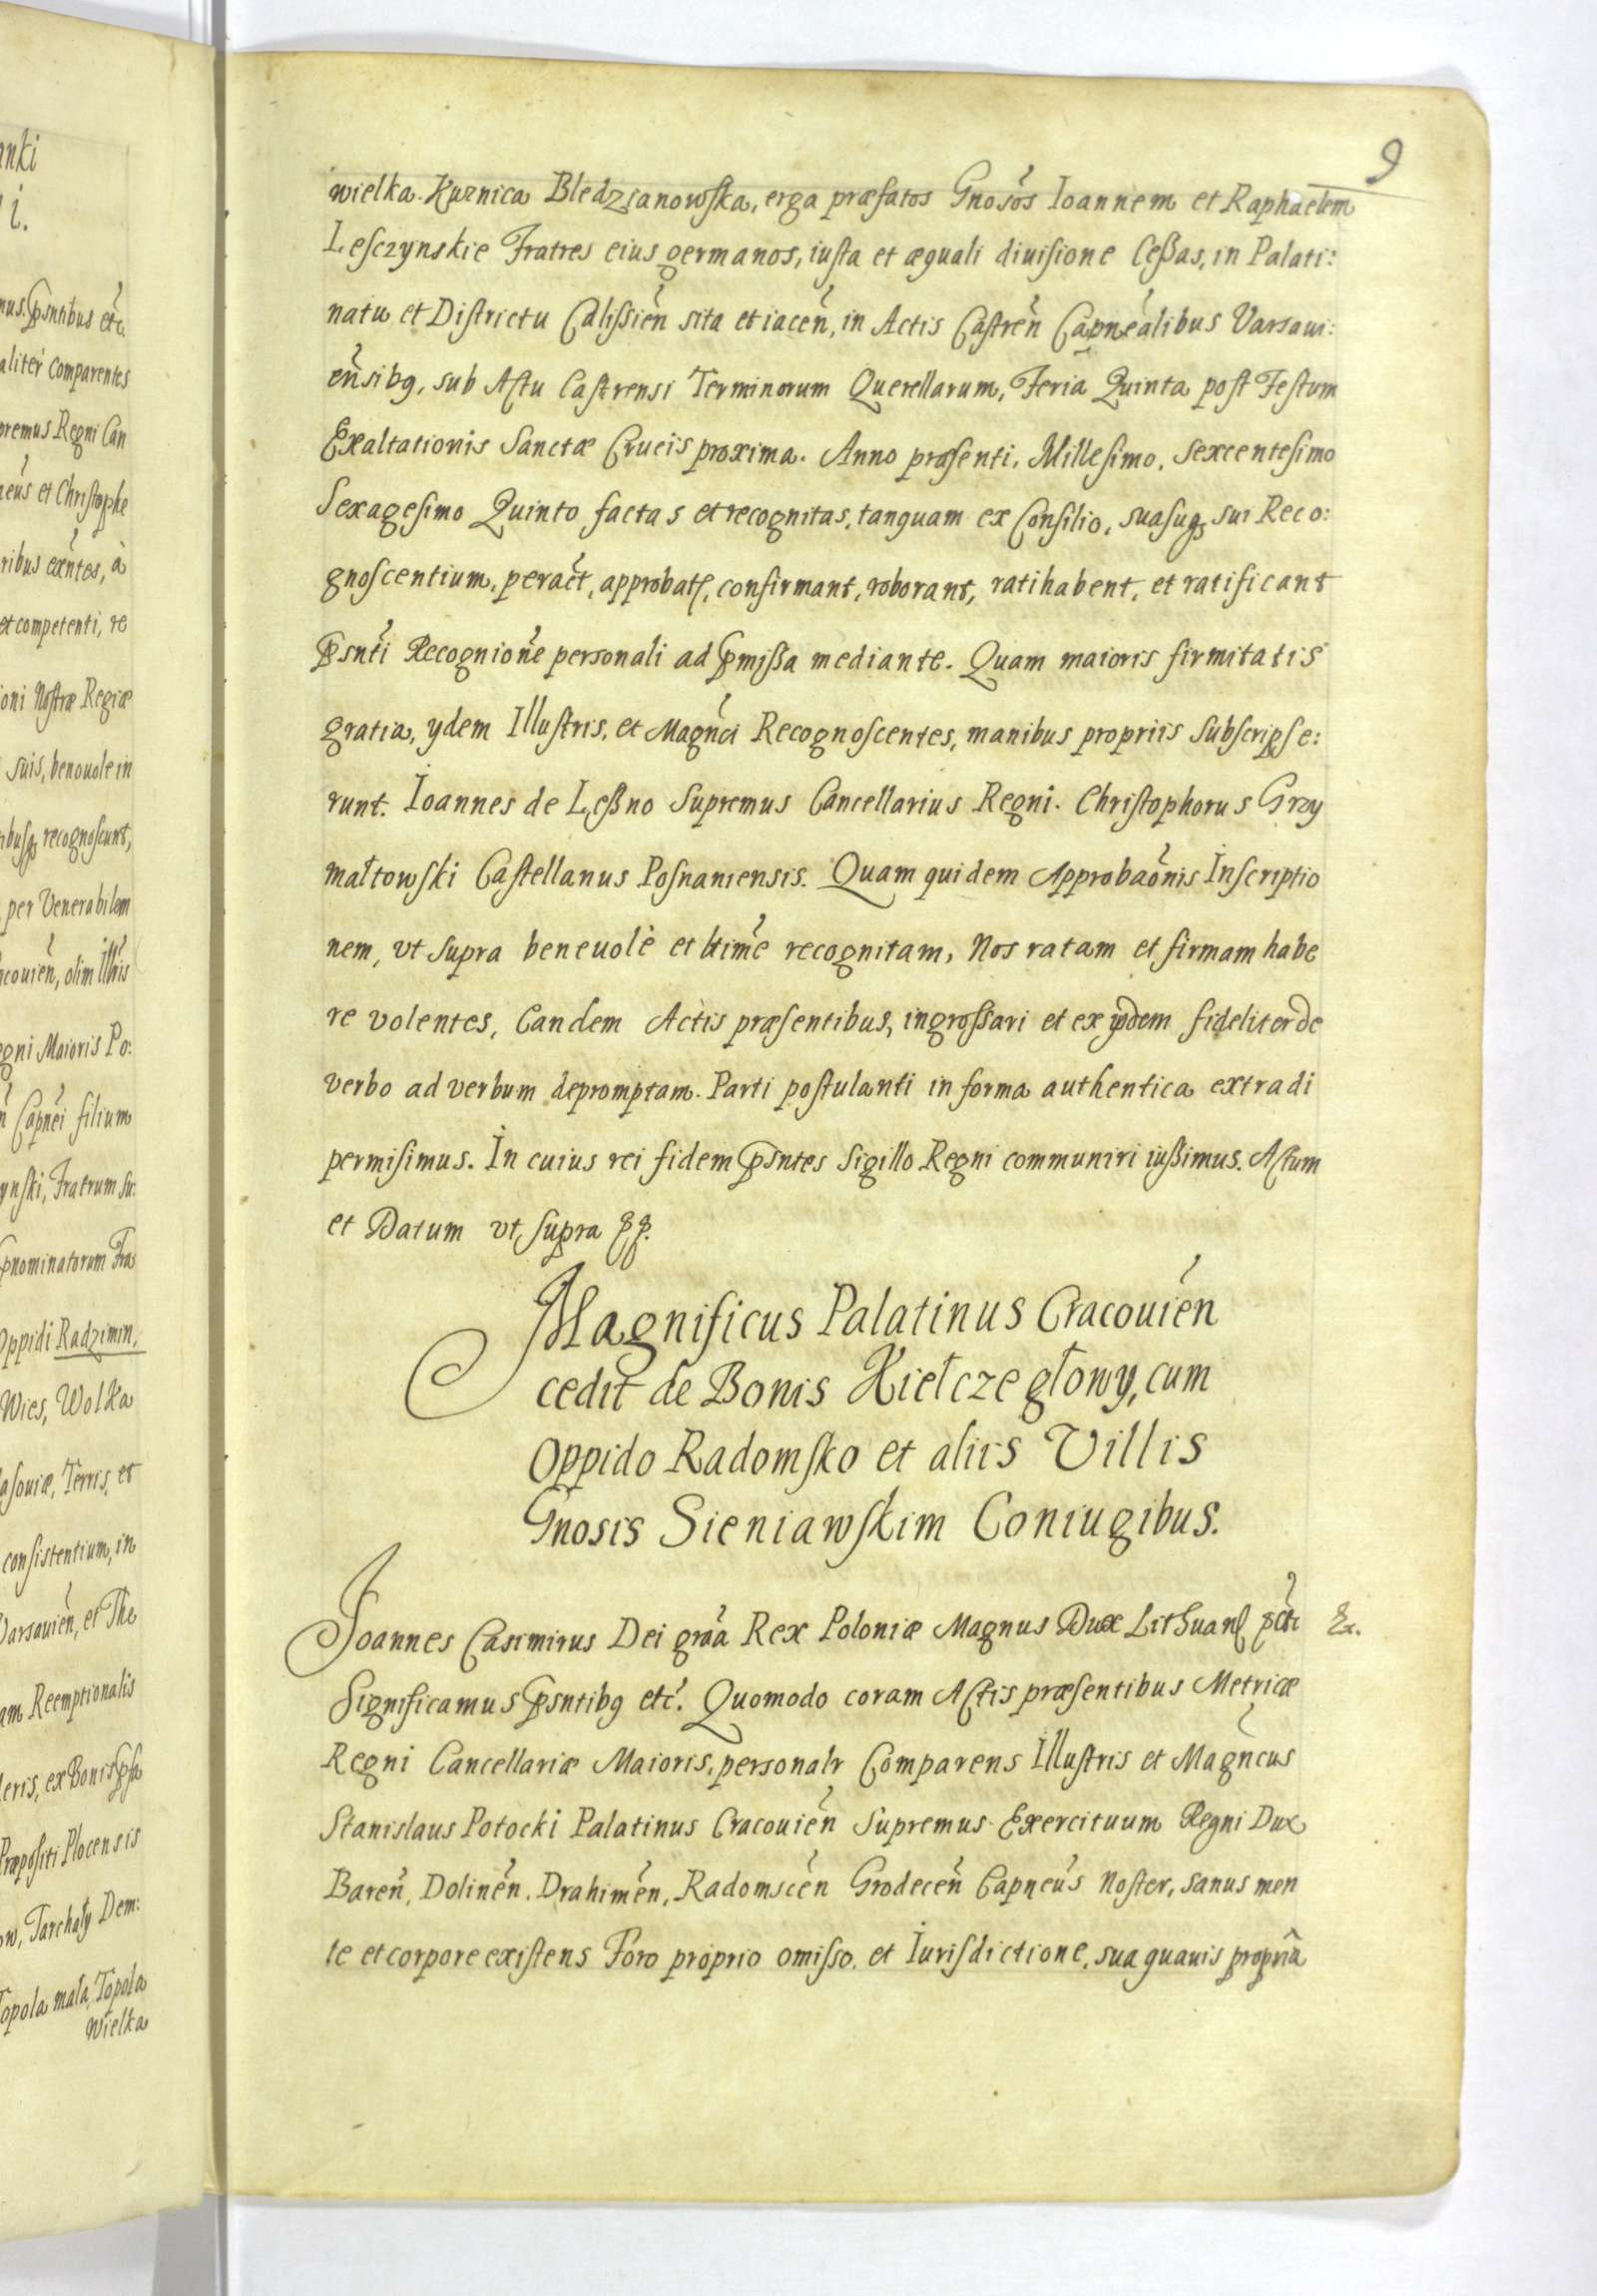 anki
i.
mus. Psntibus etc
aliter Comparentes
premus Regni Can
neus et Christophe
ribus exntes, à
et competenti, re
ioni Nostræ Regiæ
suis, beneuole in
ibusq recognoscunt,
per Venerabilem
acouien, olim Illris
egni Maioris Po:
n Capnei filium
ynski, Fratrum su:
pnominatorum Fra
Oppidi Radzimin,
Wies, Wolka
asouiæ, Terris, et
consistentium, in
Varsauien, et The
am Reemptionalis
leris, ex Bonis psa
Præpositi Plocensis
ow, Tarchały Dem:
Topola mała, Topola
wielka
9
wielka. Kuznica Bledzianowska, erga præfatos Gnosos Ioannem et Raphaelem
Lesczynskie Fratres eius germanos, iusta et æquali diuisione Cessas, in Palati:
natu et Districtu Calissien sita et iacen, in Actis Castren Capnealibus Varsaui:
ensibq, sub Actu Castrensi Terminorum Querellarum, Feria Quinta post Festum
Exaltationis Sanctæ Crucis proxima. Anno præsenti, Millesimo, Sexcentesimo
Sexagesimo Quinto factas et recognitas, tanquam ex Consilio, suasuq sui Reco:
gnoscentium, peract, approbat, confirmant, roborant, ratihabent, et ratificant
Psnti Recognione personali ad pmissa mediante. Quam maioris firmitatis
gratia, ydem Illustris, et Magnci Recognoscentes, manibus propriis subscripse:
runt. Ioannes de Lessno Supremus Cancellarius Regni. Christophorus Grzy
małtowski Castellanus Posnaniensis. Quam quidem Approbaonis Inscriptio
nem, vt supra beneuolè et ltime recognitam, Nos ratam et firmam habe
re volentes, Eandem Actis præsentibus, ingrossari et ex ijsdem fideliter de
verbo ad verbum depromptam. Parti postulanti in forma authentica extradi
permisimus. In cuius rei fidem Psntes Sigillo Regni communiri iussimus. Actum
et Datum vt supra
Magnificus Palatinus Cracouien
cedit de Bonis Kiełczegłowy, cum
Oppido Radomsko et aliis Villis
Gnosis Sieniawskim Coniugibus.
Ioannes Casimirus Dei graa Rex Poloniæ Magnus Dux Lithuan
Significamus Psntibq etc. Quomodo coram Actis præsentibus Metricæ
Regni Cancellariæ Maioris, personalr Comparens Illustris et Magncus
Stanislaus Potocki Palatinus Cracouien Supremus Exercituum Regni Dux
Baren, Dolinen. Drahimen, Radomscen Grodecen Capneus Noster, sanus men
te et corpore existens Foro proprio omisso, et Iurisdictione, sua quauis propria